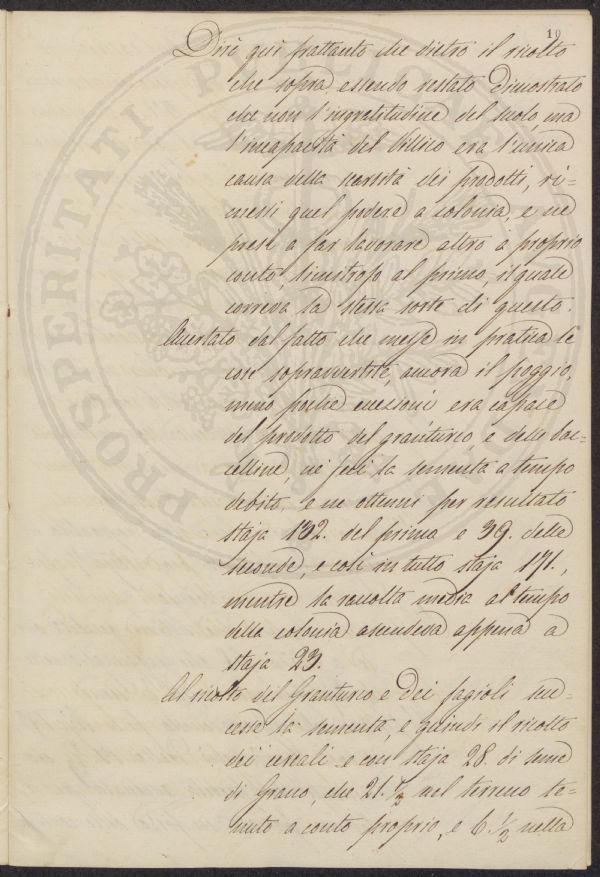 10
Dirò quì frattanto che dietro il ricolto
che sopra essendo restato dimostrato
che non l'ingratitudine del suolo, ma
l'incapacità del Villico era l'unica
causa della scarsità dei prodotti, ri=
messi quel podere a colonia, e ne
presi a far lavorare altro a proprio
conto, limitrofo al primo, il quale
correva la stessa sorte di questo.
Accertato dal fatto che messe in pratica le
cose sopravvertite, ancora il poggio,
meno poche eccezioni era capace
del prodotto del granturco, e delle bac=
celline, nè feci la sementa a tempo
debito, e ne ottenni per resultato
staja 132. del primo e 39. delle
seconde, e così in tutto staja 171.,
mentre la raccolta media al tempo
della colonia ascendeva appena a
staja 23.
Al ricolto del Granturco e dei fagioli suc=
cesse la sementa, e quindi il ricolto
dei cereali e con staja 28. di seme
di Grano, che 21. 1/2 nel terreno te=
nuto a conto proprio, e 6. 1/2 nella
PROSPERITATI